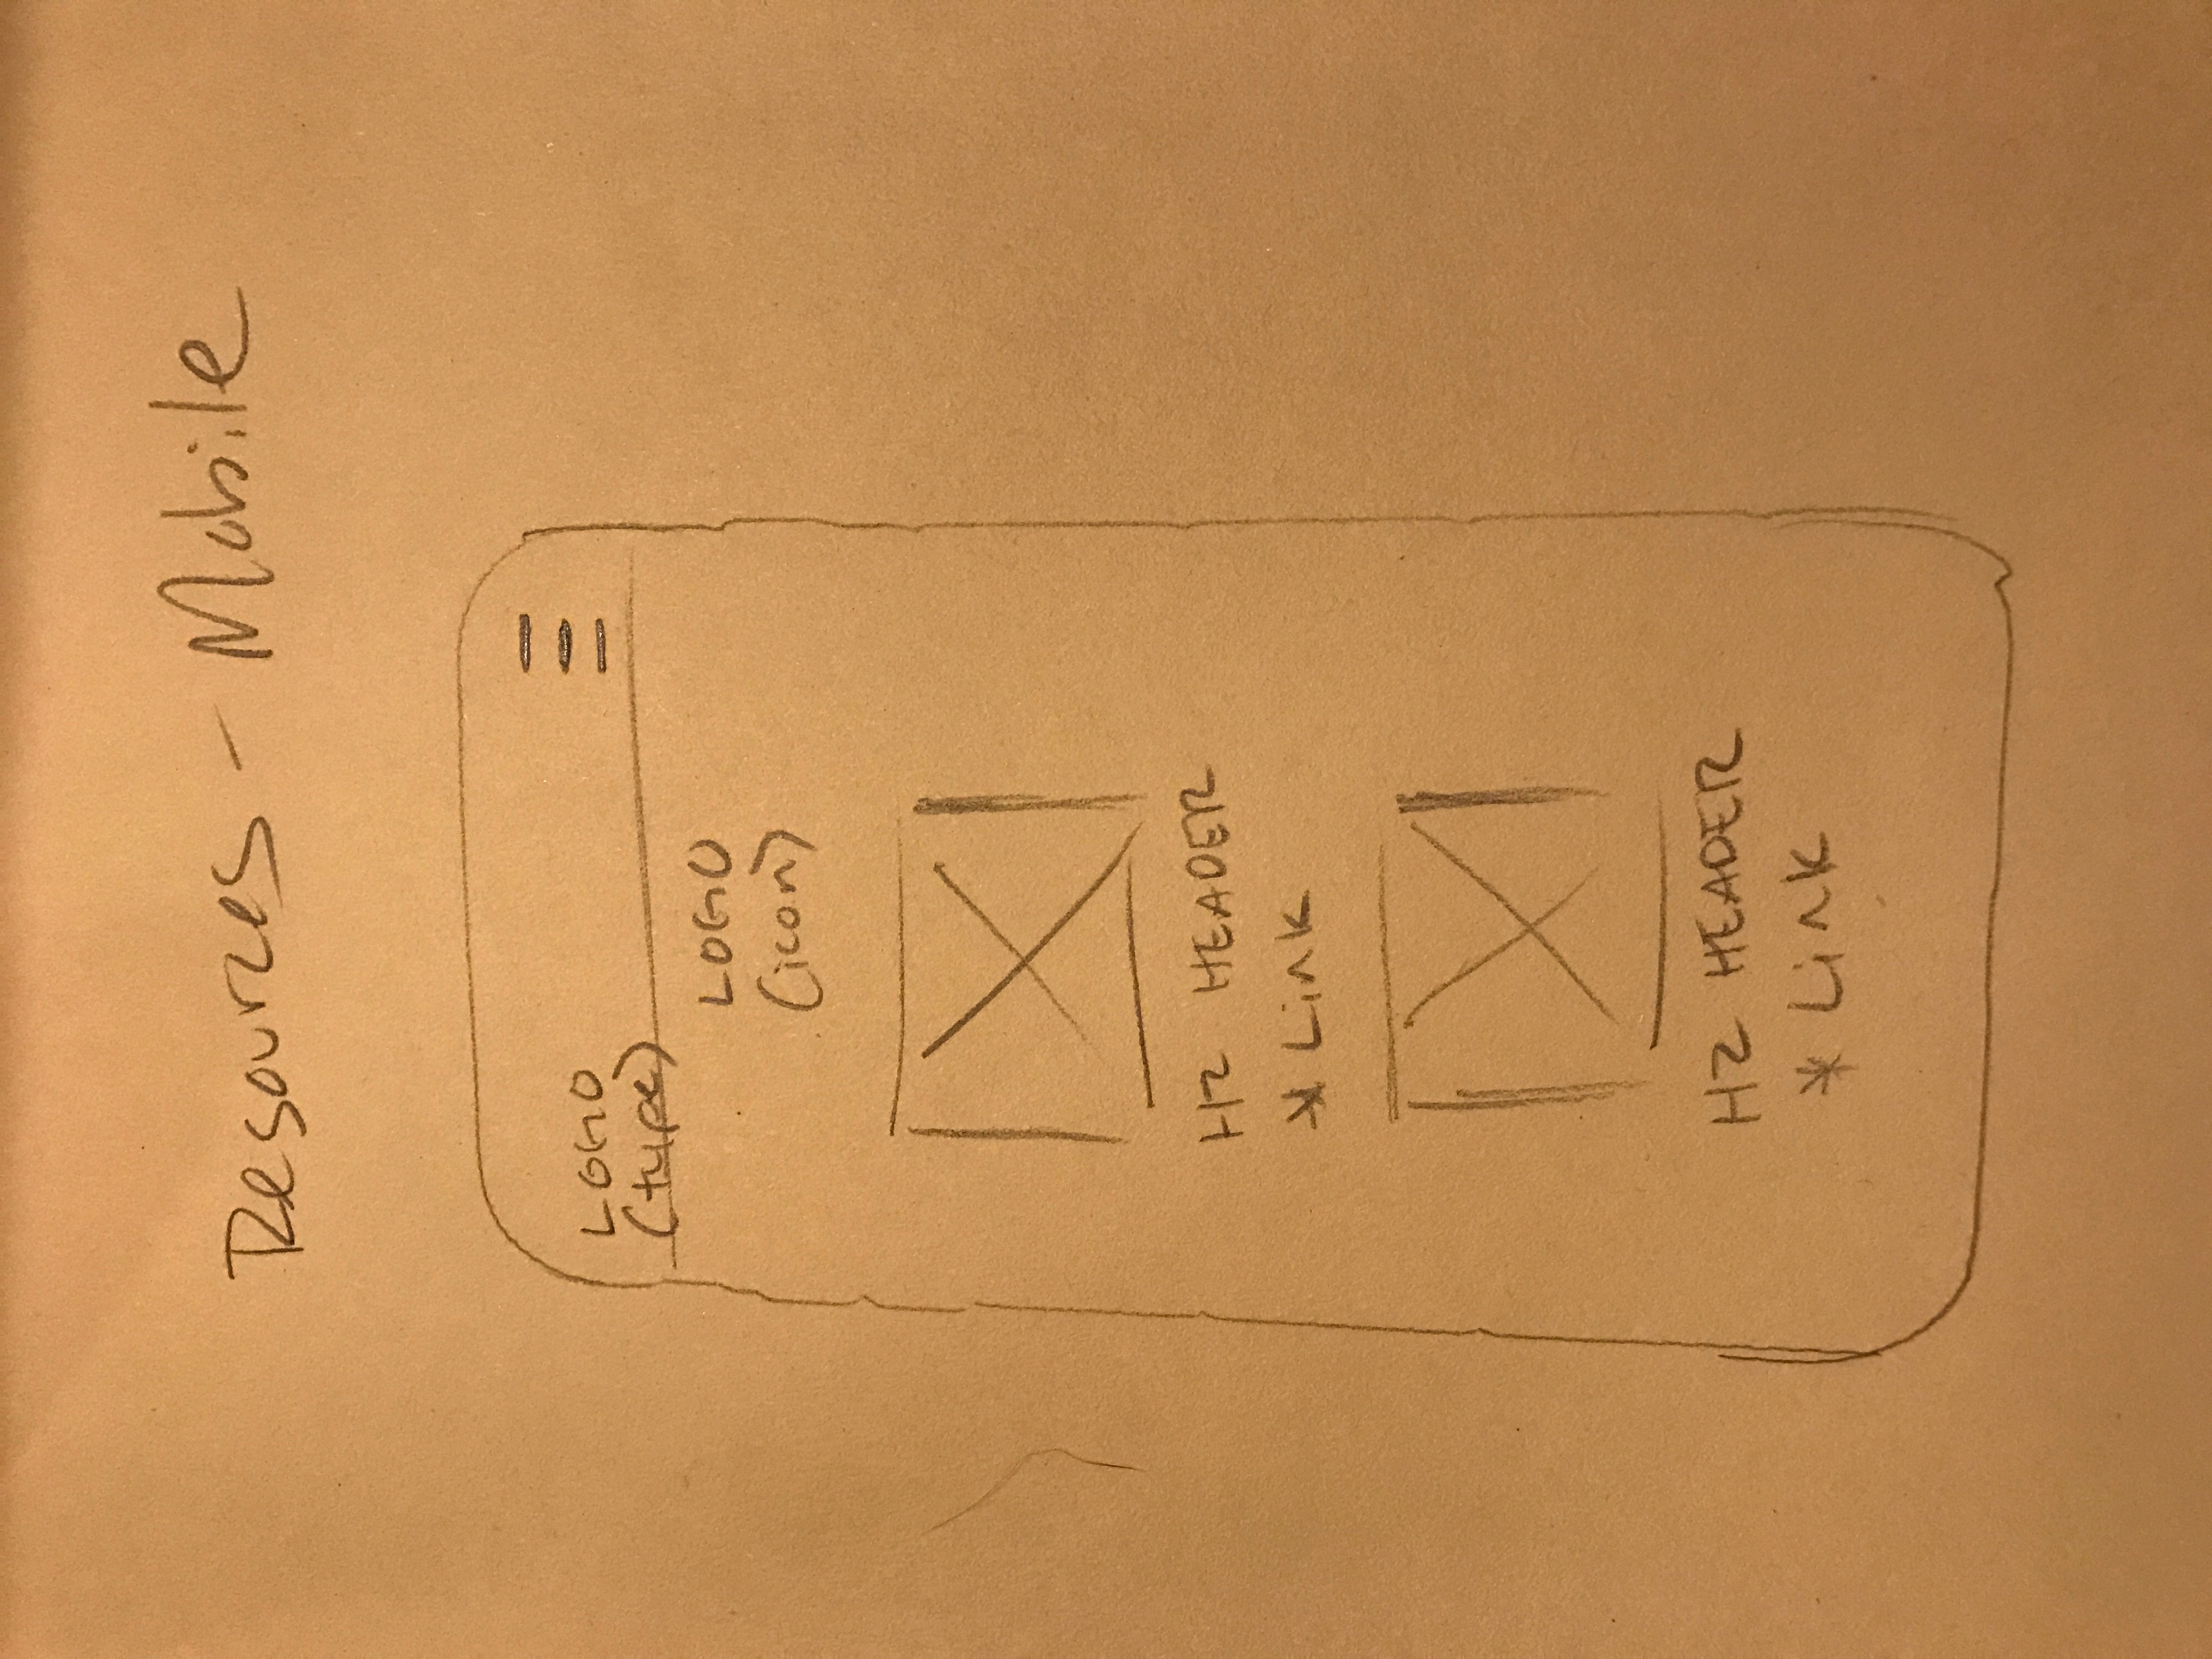 Resources - Mobile
LOGO
(type)
LOGO
(icon)
H2 HEADER
* Link
H2 HEADER
* Link